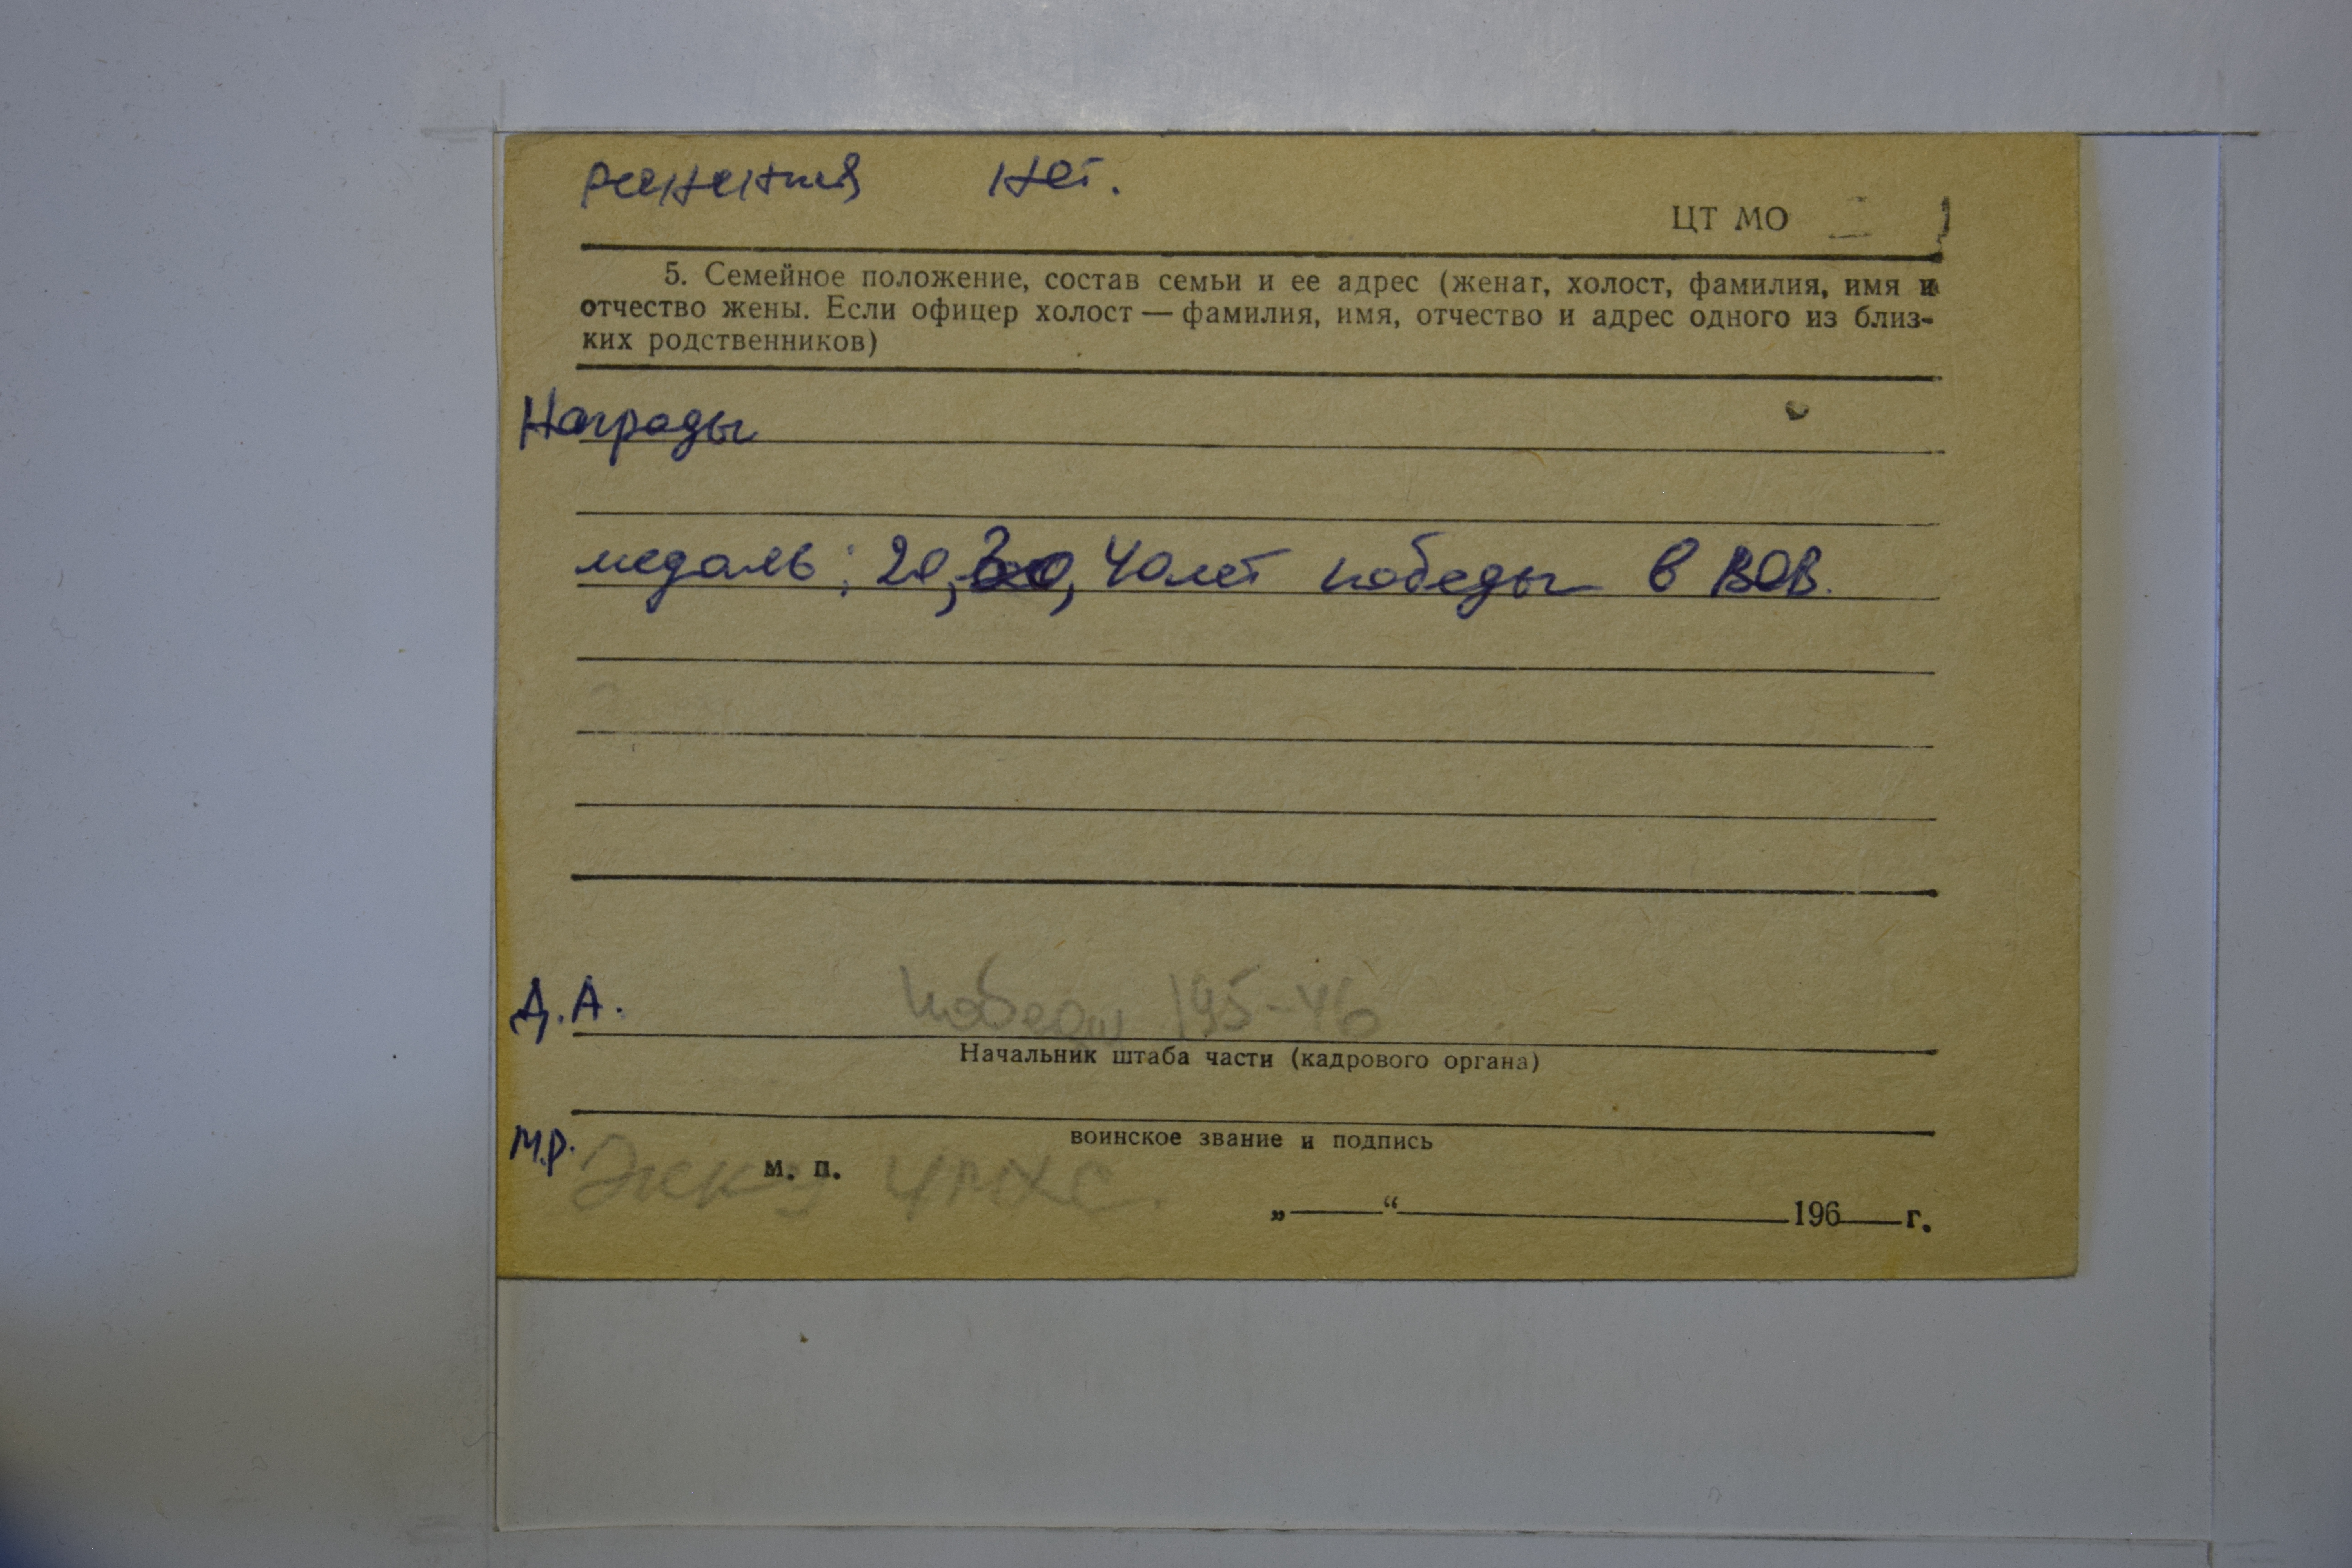 ранения нет.
ЦТ МО
5. Семейное положение, состав семьи и ее адрес (женат, холост, фамилия, имя и
отчество жены. Если офицер холост — фамилия, имя, отчество и адрес одного из близ-
ких родственников)
Награды
медаль: 20, 30, 40 лет победы в ВОВ.
Д.А.
победы 195-46
Начальник штаба части (кадрового органа)
воинское звание и подпись
М.Р.
м. п.
„——“ 196 г.